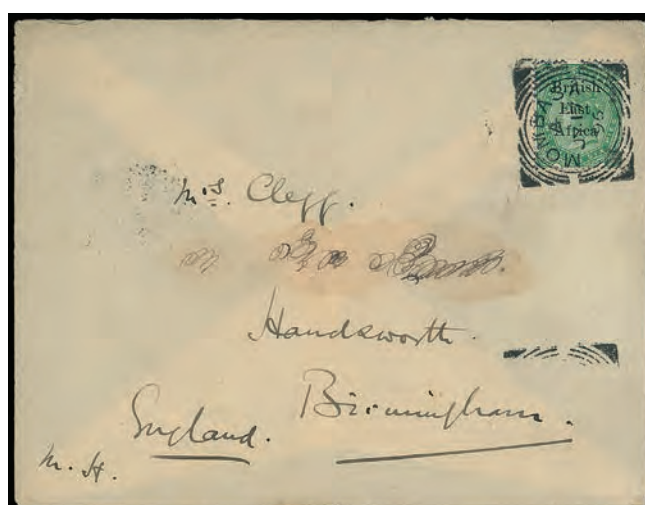 British
East
Africa
MOMBASA
95
Mrs. Clegg.
Handsworth.
Birmingham.
England.
M. H.